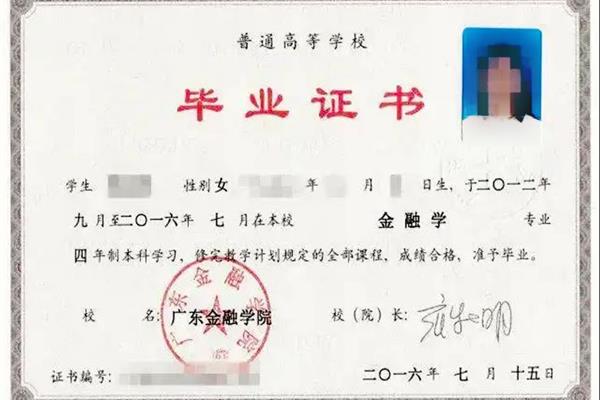 普通高等学校
毕业证书
学生 性别 女 年 月 日生，于二〇一二年
九月至二〇一六年 七 月在本校 金融学 专业
四 年制本科学习，修完教学计划规定的全部课程，成绩合格，准予毕业。
校 名：广东金融学院 校（院）长：
广东金融学院
证书编号： 二〇一六年 七 月 十五日